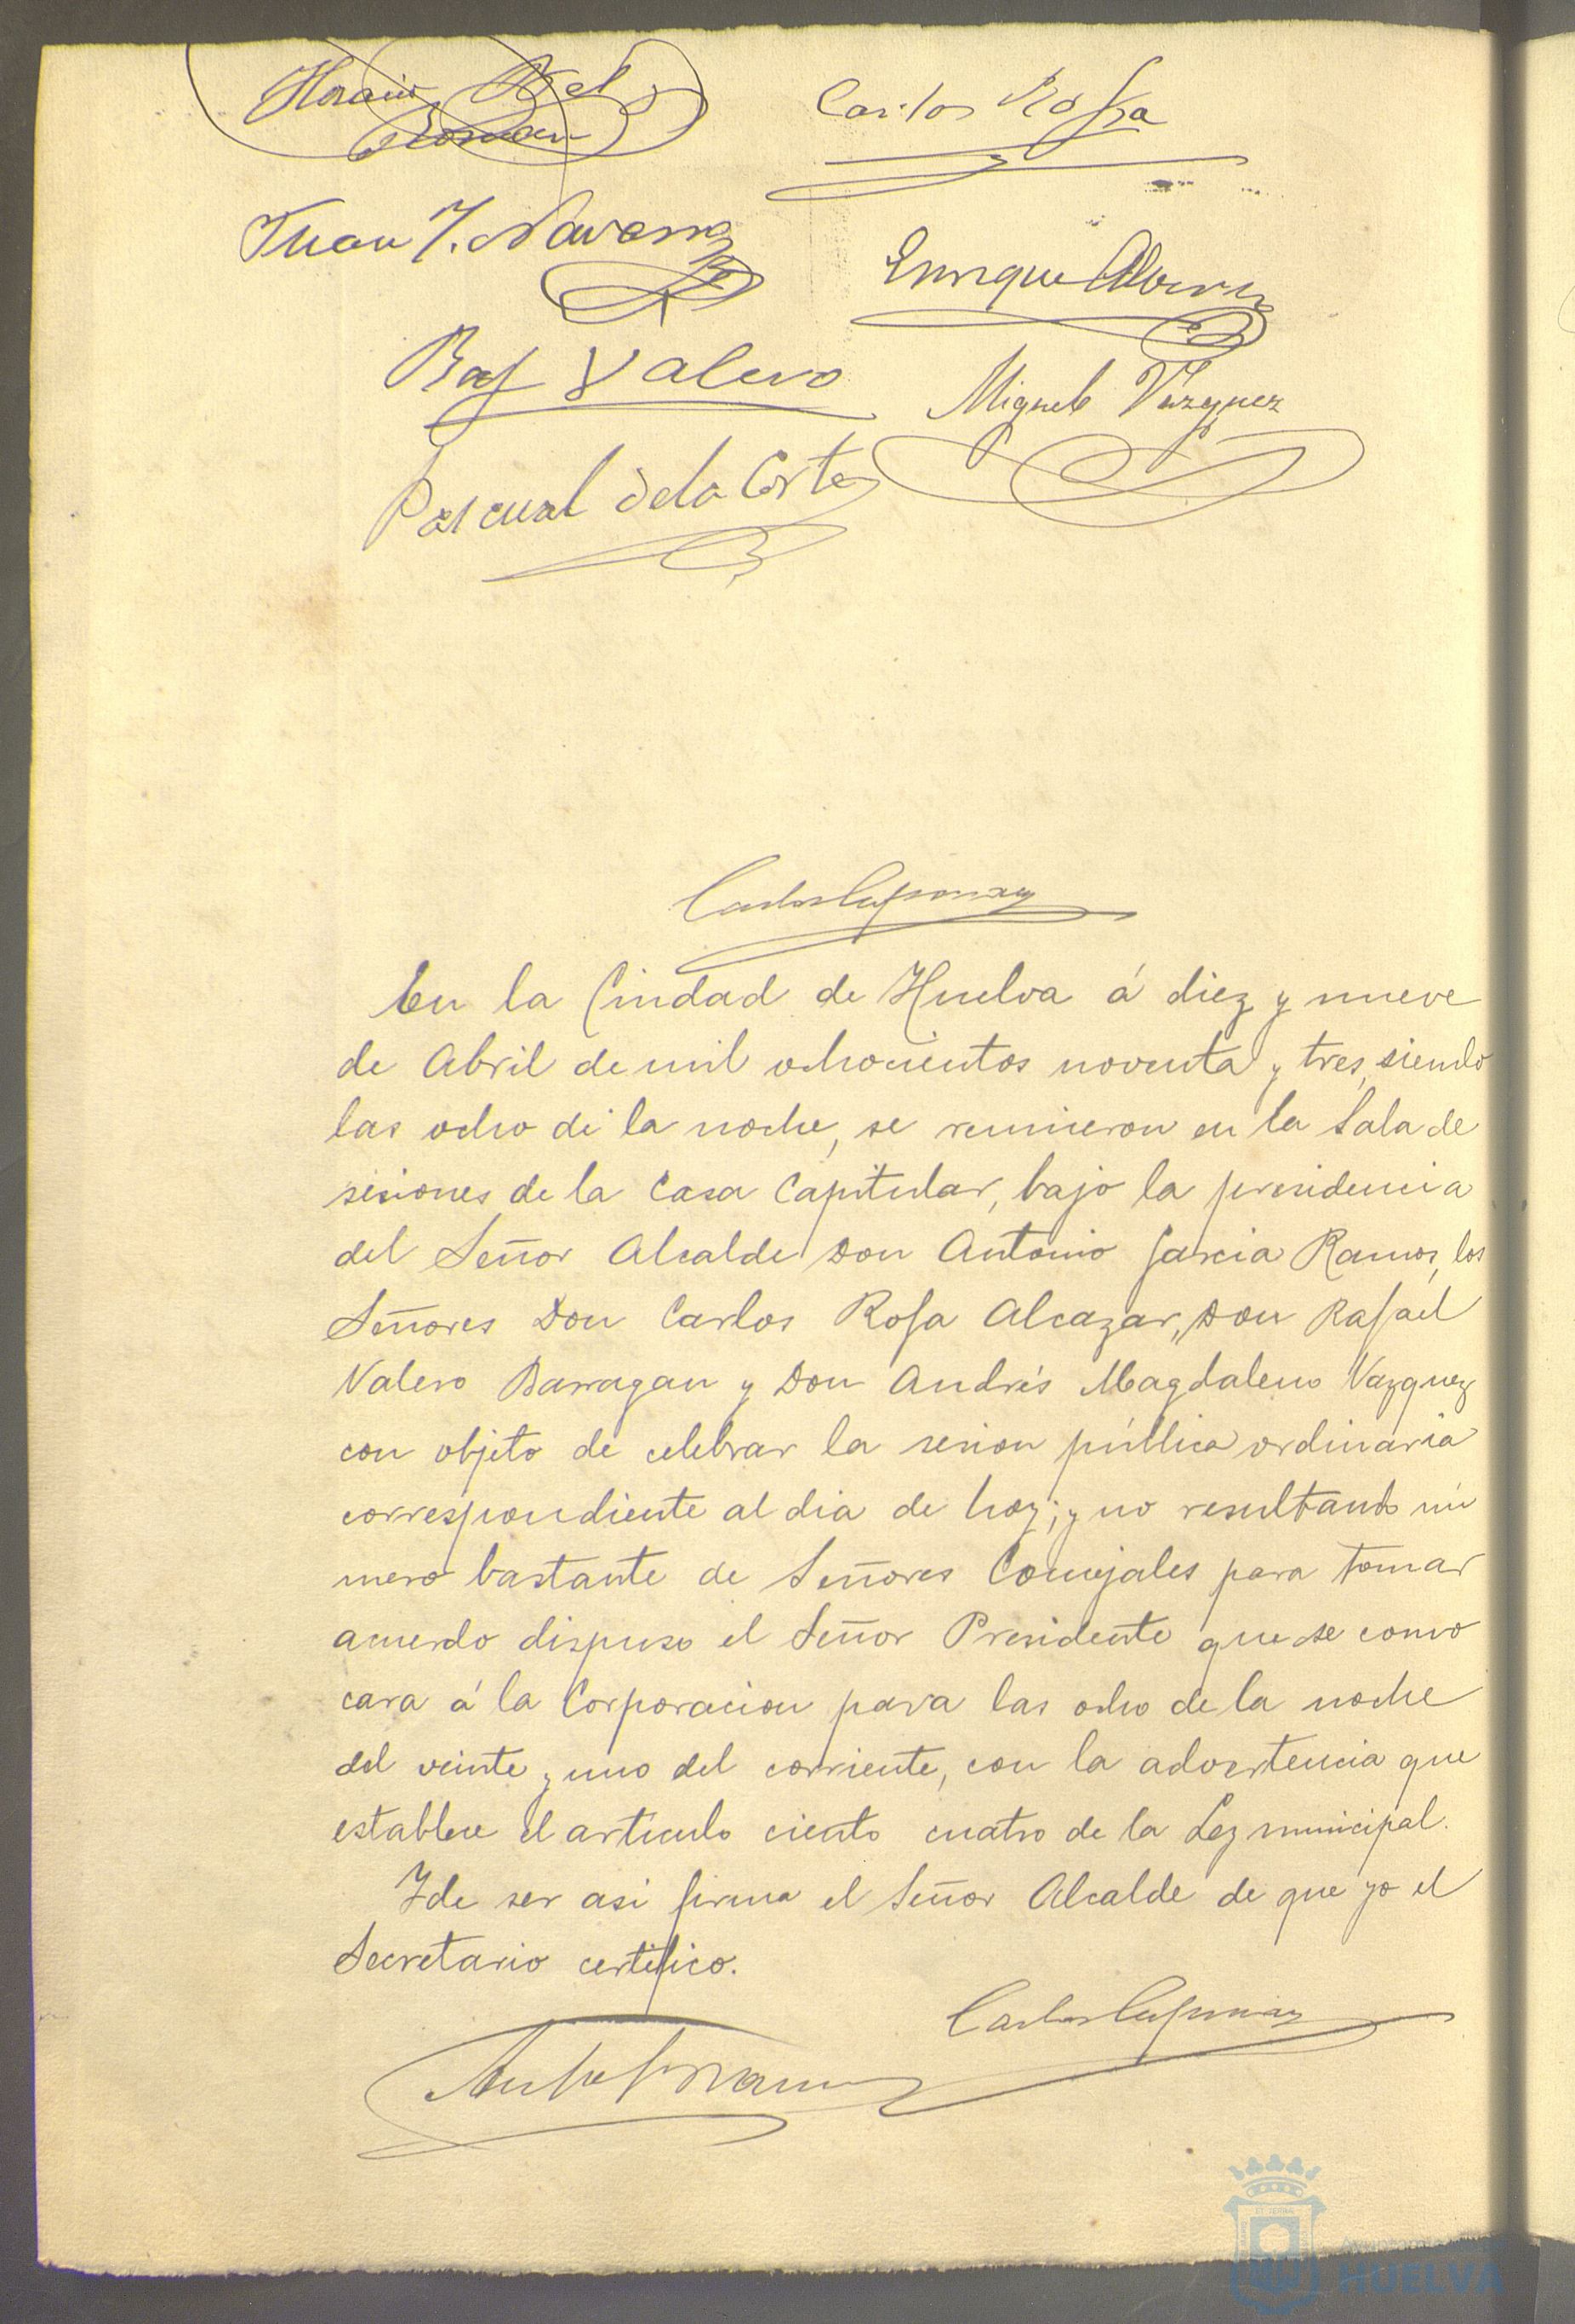 Horacio Bel Carlos Rofa
Roman
Juan J. Navarro Enrique
Raf Valero Miguel Vazquez
Pascual de la Corte
Carlos
En la Ciudad de Huelva á diez y nueve
de Abril de mil ochocientos noventa y tres, siendo
las ocho de la noche, se reunieron en la Sala de
sesiones de la Casa Capitular, bajo la presidencia
del Señor Alcalde Don Antonio Garcia Ramos, los
Señores Don Carlos Rofa Alcazar, Don Rafael
Valero Barragan y Don Andrés Magdaleno Vazquez
con objeto de celebrar la sesion pública ordinaria
correspondiente al dia de hoy; y no resultando nú
mero bastante de Señores Concejales para tomar
acuerdo dispuso el Señor Presidente que se convo
cara á la Corporacion para las ocho de la noche
del veinte y uno del corriente, con la advertencia que
establece el artículo ciento cuatro de la Ley municipal.
Y de ser asi firma el Señor Alcalde de que yo el
Secretario certifico.
Carlos
HUELVA